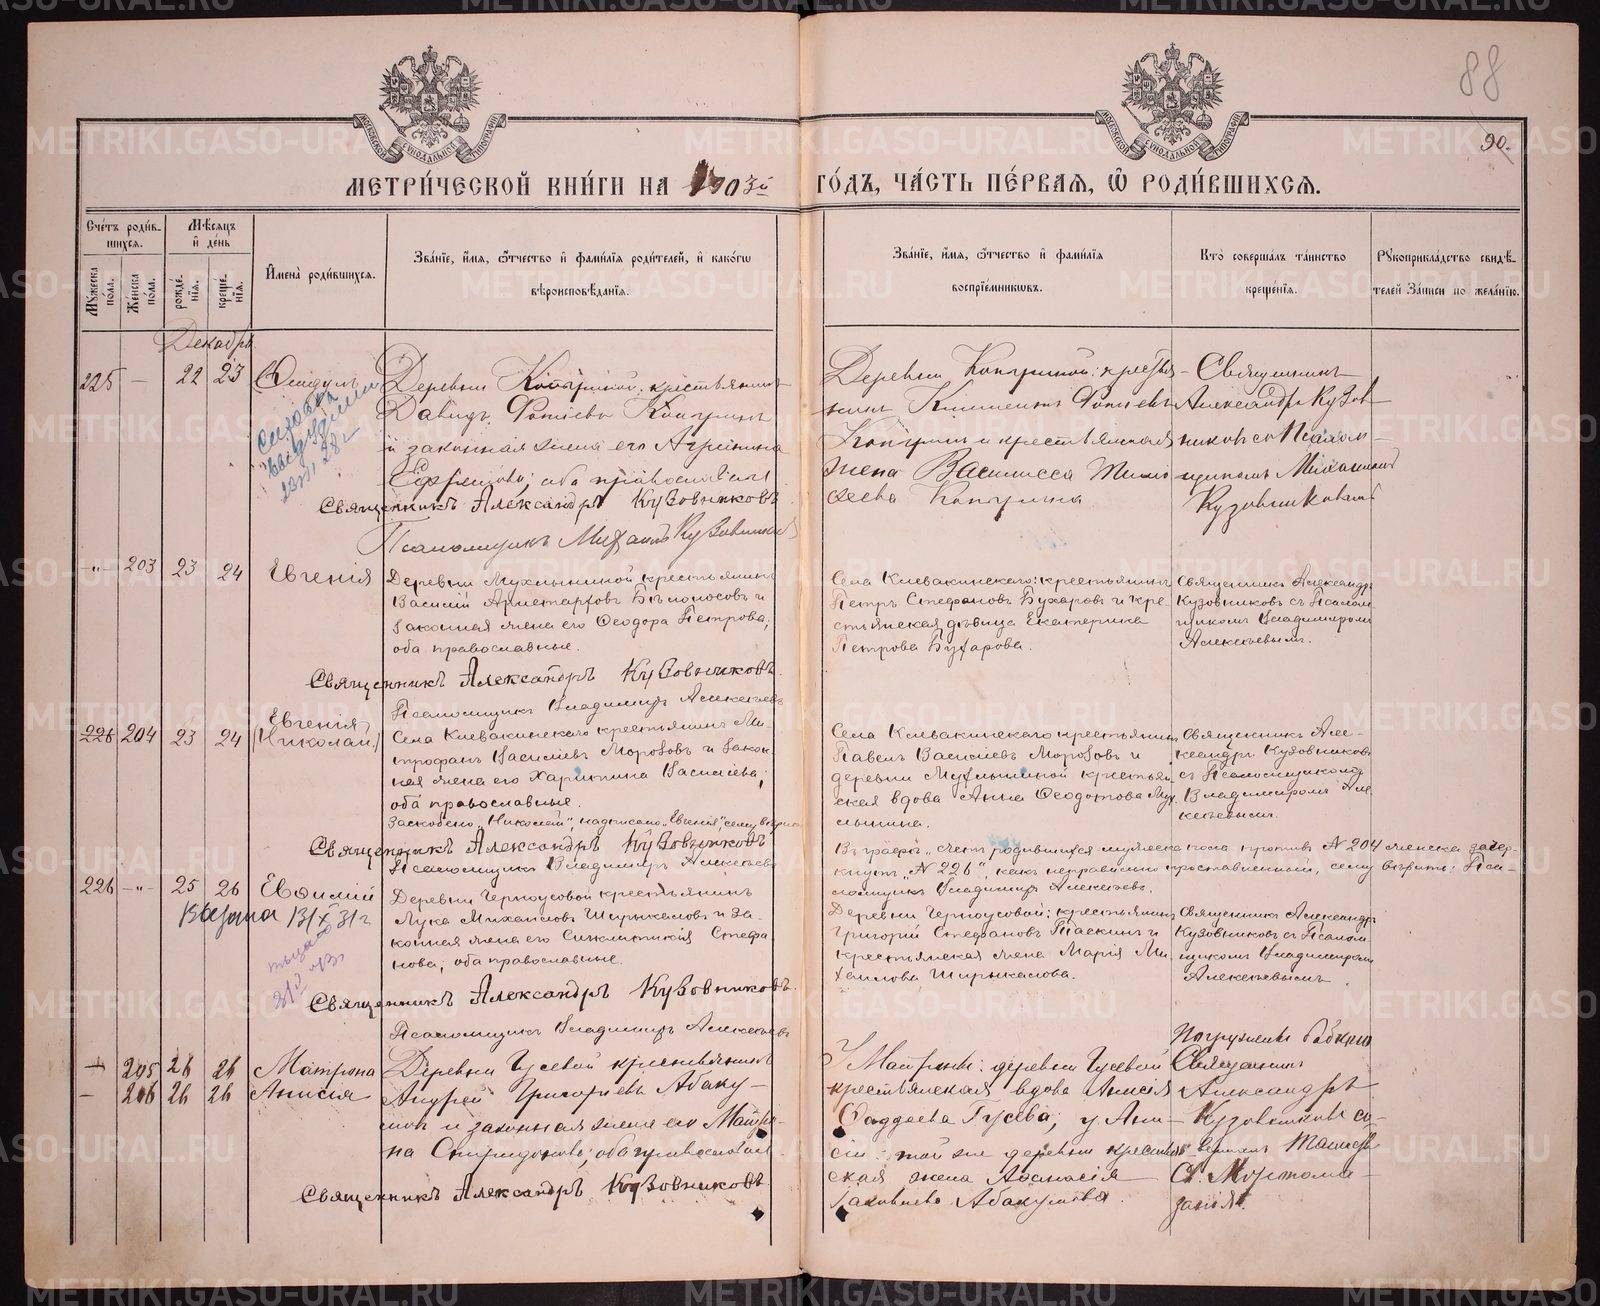 88
90.
МЕТРИ́ЧЕСКОЙ КНИ́ГИ НА 1903й ГО́ДЪ, ЧА́СТЬ ПЕ́РВАЯ, Ѡ҆ РОДИ́ВШИХСЯ.
Сче́тъ роди́вшихся.
Мꙋ́жеска по́ла.
Же́нска по́ла.
Мѣ́сяцъ и҆ де́нь
рожде́нїя.
креще́нїя.
И҆мена̀ роди́вшихся.
Зва́нїе, и҆́мя, ѻ҆́тчество и҆ фами́лїя роди́телей, и҆ како́гѡ
вѣроисповѣ́данїя.
Зва́нїе, и҆́мя, ѻ҆́тчество и҆ фами́лїя
воспрїе́мникѡвъ.
Кто̀ соверша́лъ та́инство
креще́нїя.
Рꙋкоприкла́дство свидѣ́-
телей За́писи по жела́нїю.
Декабрь
225 — 22 23
Деревни Копыриной: крестьянинъ
Давидъ Фотіевъ Копыринъ
и законная жена его Агрипина
Ефремова; оба православные
Священникъ Александръ Кузовниковъ
Псаломщикъ Михаилъ Кузовниковъ
Деревни Копыриной: кресть-
янинъ Климентъ Фотіевъ
Копыринъ и крестьянская
жена Василисса Тимо-
феева Копырина
Священникъ
Александръ Кузов-
никовъ со Псалом-
щикомъ Михаиломъ
Кузовниковымъ
-"- 203 23 24 Евгенія
Деревни Мухлыниной крестьянинъ
Василій Аристарховъ Бѣлоносовъ и
законная жена его Ѳеодора Петрова,
оба православные.
Священникъ Александръ Кузовниковъ
Псаломщикъ Владимиръ Алексѣевъ
Села Клевакинскаго: крестьянинъ
Петръ Стефановъ Бухаровъ и кре-
стьянская дѣвица Екатерина
Петрова Бухарова.
Священникъ Александръ
Кузовниковъ съ Псалом-
щикомъ Владимиромъ
Алексѣевымъ.
226 204 23 24 Евгенія
(Николай.)
Села Клевакинскаго крестьянинъ Ми-
трофанъ Васильевъ Морозовъ и закон-
ная жена его Харитина Васильева,
оба православные.
Заскоблено „Николай", надписано „Евгенія", сему вѣрить
Священникъ Александръ Кузовниковъ
Псаломщикъ Владимиръ Алексѣевъ
Села Клевакинскаго крестьянинъ
Павелъ Васильевъ Морозовъ и
деревни Мухлыниной крестьян-
ская вдова Анна Ѳеодотова Мух-
лынина.
Священникъ Але-
ксандръ Кузовниковъ
съ Псаломщикомъ
Владимиромъ Але-
ксѣевымъ.
Въ графѣ „счетъ родившихся мужеска пола противъ № 204 женска зачер-
кнутъ „№ 226", какъ неправильно проставленный, сему вѣрить: Пса-
ломщикъ Владимиръ Алексѣевъ.
226 -"- 25 26 Евѳимій
131 X 31 г.
Деревни Черноусовой крестьянинъ
Лука Михаиловъ Ширыкаловъ и за-
конная жена его Синклитикія Стефа-
нова, оба православные.
Священникъ Александръ Кузовниковъ.
Псаломщикъ Владимиръ Алексѣевъ
Деревни Черноусовой: крестьянинъ
Григорій Стефановъ Паскинъ и
крестьянская жена Марія Ми-
хаилова Ширыкалова.
Священникъ Александръ
Кузовниковъ съ Псалом-
щикомъ Владимиромъ
Алексѣевымъ.
— 205 26 26 Матрона
— 206 26 26 Анисія
Деревни Гусевой крестьянинъ
Андрей Григорьевъ Абаку-
мовъ и законная жена его Матро-
на Спиридонова; оба православные
Священникъ Александръ Кузовниковъ
У Матроны: деревни Гусевой
крестьянская вдова Анисія
Фаддеева Гусева, у Ани-
сіи: той же деревни крестьян-
ская жена Аѳанасія
Яковлева Абакумова.
Погружены бабкою
Священникъ
Александръ
Кузовниковъ со-
вершилъ Таинство
Св. Мѵропома-
занія.